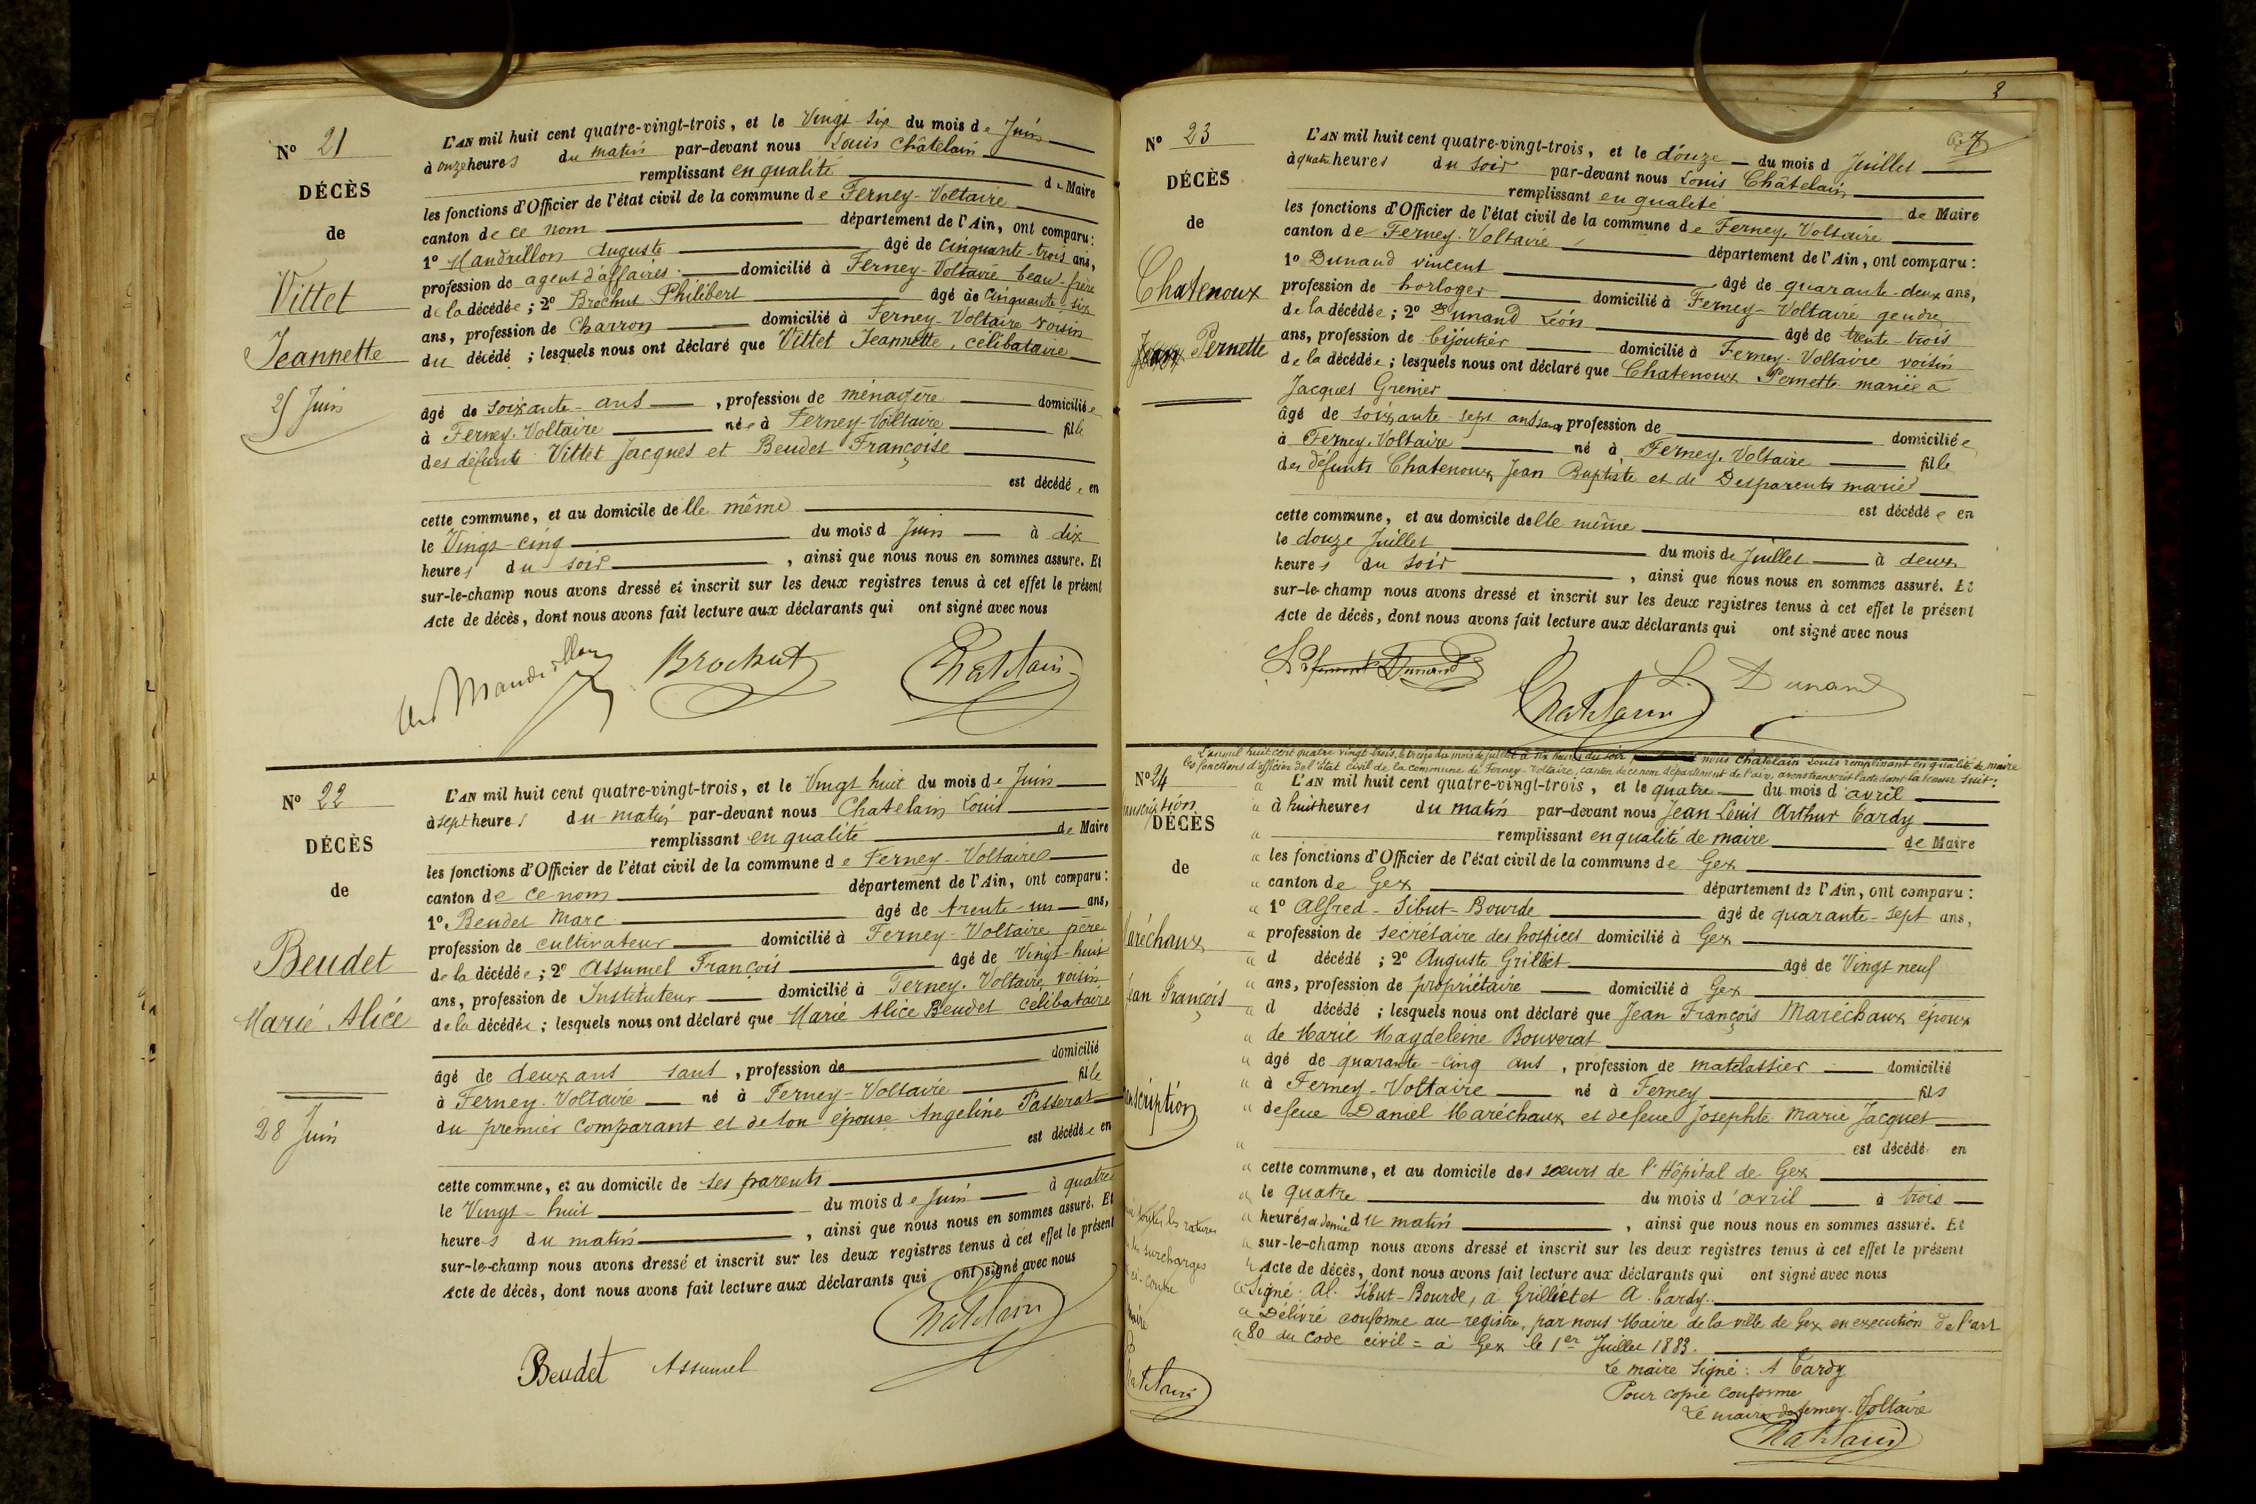 N° 21
DÉCÈS
de
Vittet
Jeannette
25 Juin
L'AN mil huit cent quatre-vingt-trois, et le Vingt-six du mois de Juin
à onze heures du matin par-devant nous Louis Châtelain
remplissant en qualité de Maire
les fonctions d'Officier de l'état civil de la commune de Ferney-Voltaire
canton de ce nom département de l'Ain, ont comparu:
1° Mandrillon Auguste âgé de cinquante-trois ans,
profession de agent d'affaires domicilié à Ferney-Voltaire beau-frère
de la décédée; 2° Brochut Philibert âgé de cinquante-six
ans, profession de Charron domicilié à Ferney-Voltaire voisin
du décédé; lesquels nous ont déclaré que Vittet Jeannette, célibataire
âgé de soixante-ans, profession de ménagère domiciliée
à Ferney-Voltaire née à Ferney-Voltaire fille
des défunts Vittet Jacques et Beudet Françoise
est décédée en
cette commune, et au domicile delle même
le Vingt-cinq du mois d Juin à dix
heures du soir, ainsi que nous nous en sommes assuré. Et
sur-le-champ nous avons dressé et inscrit sur les deux registres tenus à cet effet le présent
Acte de décès, dont nous avons fait lecture aux déclarants qui ont signé avec nous
Mandrillon Brochut Chatelain
N° 22
DÉCÈS
de
Beudet
Marie Alice
28 Juin
L'AN mil huit cent quatre-vingt-trois, et le Vingt huit du mois de Juin
à sept heures du matin par-devant nous Chatelain Louis
remplissant en qualité de Maire
les fonctions d'Officier de l'état civil de la commune de Ferney-Voltaire
canton de ce nom département de l'Ain, ont comparu:
1° Beudet Marc âgé de trente-un ans,
profession de cultivateur domicilié à Ferney-Voltaire père
de la décédée; 2° Assumel François âgé de Vingt-huit
ans, profession de Instituteur domicilié à Ferney-Voltaire voisin
de la décédée; lesquels nous ont déclaré que Marie Alice Beudet célibataire
âgé de deux ans sans, profession de domicilié
à Ferney-Voltaire né à Ferney-Voltaire fille
du premier comparant et de son épouse Angeline Passerat
est décédée en
cette commune, et au domicile de ses parents
le Vingt-huit du mois de Juin à quatre
heures du matin, ainsi que nous nous en sommes assuré. Et
sur-le-champ nous avons dressé et inscrit sur les deux registres tenus à cet effet le présent
Acte de décès, dont nous avons fait lecture aux déclarants qui ont signé avec nous
Chatelain
Beudet Assumel
2
7
N° 23
DÉCÈS
de
Chatenoux
Pernette
L'AN mil huit cent quatre-vingt-trois, et le douze du mois d Juillet
à quatre heures du soir par-devant nous Louis Châtelain
remplissant en qualité de Maire
les fonctions d'Officier de l'état civil de la commune de Ferney-Voltaire
canton de Ferney-Voltaire département de l'Ain, ont comparu:
1° Dunand vincent âgé de quarante-deux ans,
profession de horloger domicilié à Ferney-Voltaire gendre
de la décédée; 2° Dunand Léon âgé de trente-trois
ans, profession de bijoutier domicilié à Ferney-Voltaire voisin
de la décédée; lesquels nous ont déclaré que Chatenoux Pernette mariée a
Jacques Grenier
âgé de soixante-sept ans sans profession de domiciliée
à Ferney-Voltaire né à Ferney-Voltaire fille
des défunts Chatenoux Jean Baptiste et de Desparents mariés
est décédée en
cette commune, et au domicile delle même
le douze Juillet du mois de Juillet à deux
heures du soir, ainsi que nous nous en sommes assuré. Et
sur-le-champ nous avons dressé et inscrit sur les deux registres tenus à cet effet le présent
Acte de décès, dont nous avons fait lecture aux déclarants qui ont signé avec nous
Dunand Chatelain L. Dunand
L'an mil huit cent quatre vingt trois, le treize du mois de juillet à six heures du soir nous Chatelain Louis remplissant en qualité de maire
les fonctions d'officier de l'état civil de la commune de Ferney-Voltaire, canton de ce nom département de l'ain, avons transcrit l'acte dont la teneur suit:
N° 24
DÉCÈS
de
aréchaux
ean François
anscription
toutes les ratures
surcharges
ci-contre
maire
L'AN mil huit cent quatre-vingt-trois, et le quatre du mois d'avril
" à huit heures du matin par-devant nous Jean Louis Arthur Tardy
" remplissant en qualité de maire de Maire
" les fonctions d'Officier de l'état civil de la commune de Gex
" canton de Gex département de l'Ain, ont comparu:
" 1° Alfred-Sibut-Bourde âgé de quarante-sept ans,
" profession de secrétaire des hospices domicilié à Gex
" d décédé; 2° Auguste Grilliet âgé de Vingt neuf
" ans, profession de propriétaire domicilié à Gex
" d décédé; lesquels nous ont déclaré que Jean François Maréchaux époux
" de Marie Magdeleine Bouverat
" âgé de quarante-cinq ans, profession de matelassier domicilié
" à Ferney-Voltaire né à Ferney fils
" defeue Daniel Maréchaux et defeue Josephte Marie Jacquet
" est décédé en
" cette commune, et au domicile des sœurs de l'Hôpital de Gex
" le quatre du mois d'avril à trois
" heures et demie du matin, ainsi que nous nous en sommes assuré. Et
" sur-le-champ nous avons dressé et inscrit sur les deux registres tenus à cet effet le présent
" Acte de décès, dont nous avons fait lecture aux déclarants qui ont signé avec nous
" Signé: Al. Sibut-Bourde, a Grilliet et A. Tardy.
" Délivré conforme au registre, par nous Maire de la ville de Gex en execution de l'art
" 80 du Code civil = à Gex le 1er Juillet 1883.
Le maire Signé: A Tardy
Pour copie conforme
Le maire de Ferney-Voltaire
Chatelain